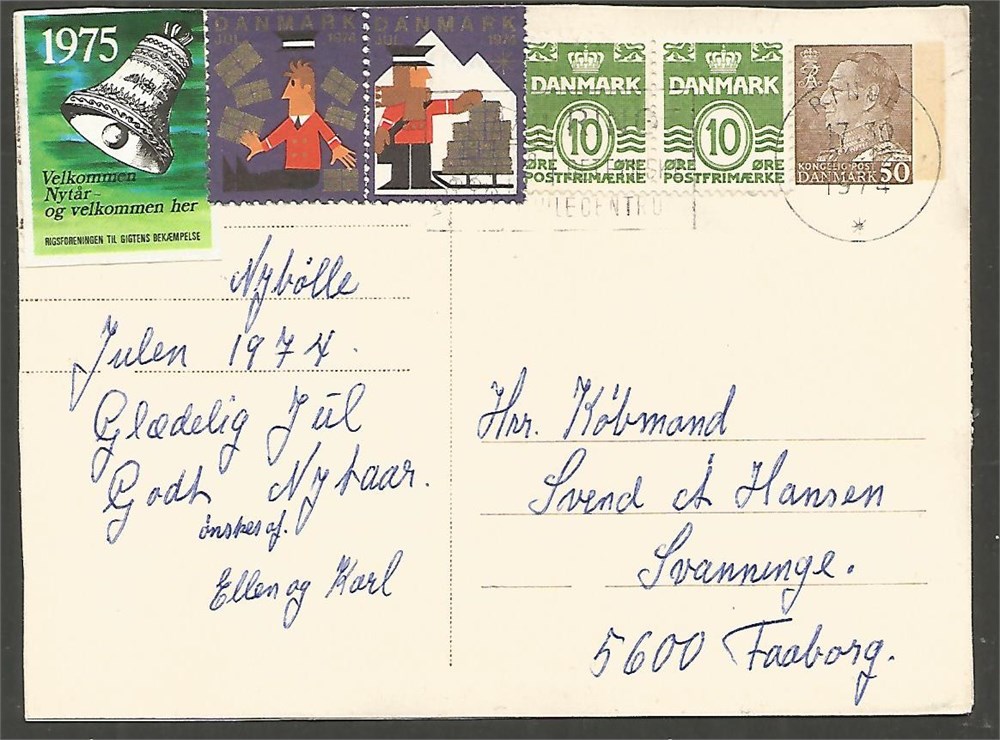 1975
Velkommen
Nytår-
og velkommen her
RIGSFORENINGEN TIL GIGTENS BEKÆMPELSE
DANMARK
JUL 1974
DANMARK
JUL 1974
DANMARK
10
ØRE ØRE
POSTFRIMÆRKE
DANMARK
10
ØRE ØRE
POSTFRIMÆRKE
KONGELIG POST
DANMARK 50
RINGE
1974
Nybölle
Julen 1974.
Glædelig Jul
Godt Nytaar.
önskes af.
Ellen og Karl
Hrr. Köbmand
Svend A Hansen
Svanninge.
5600 Faaborg.